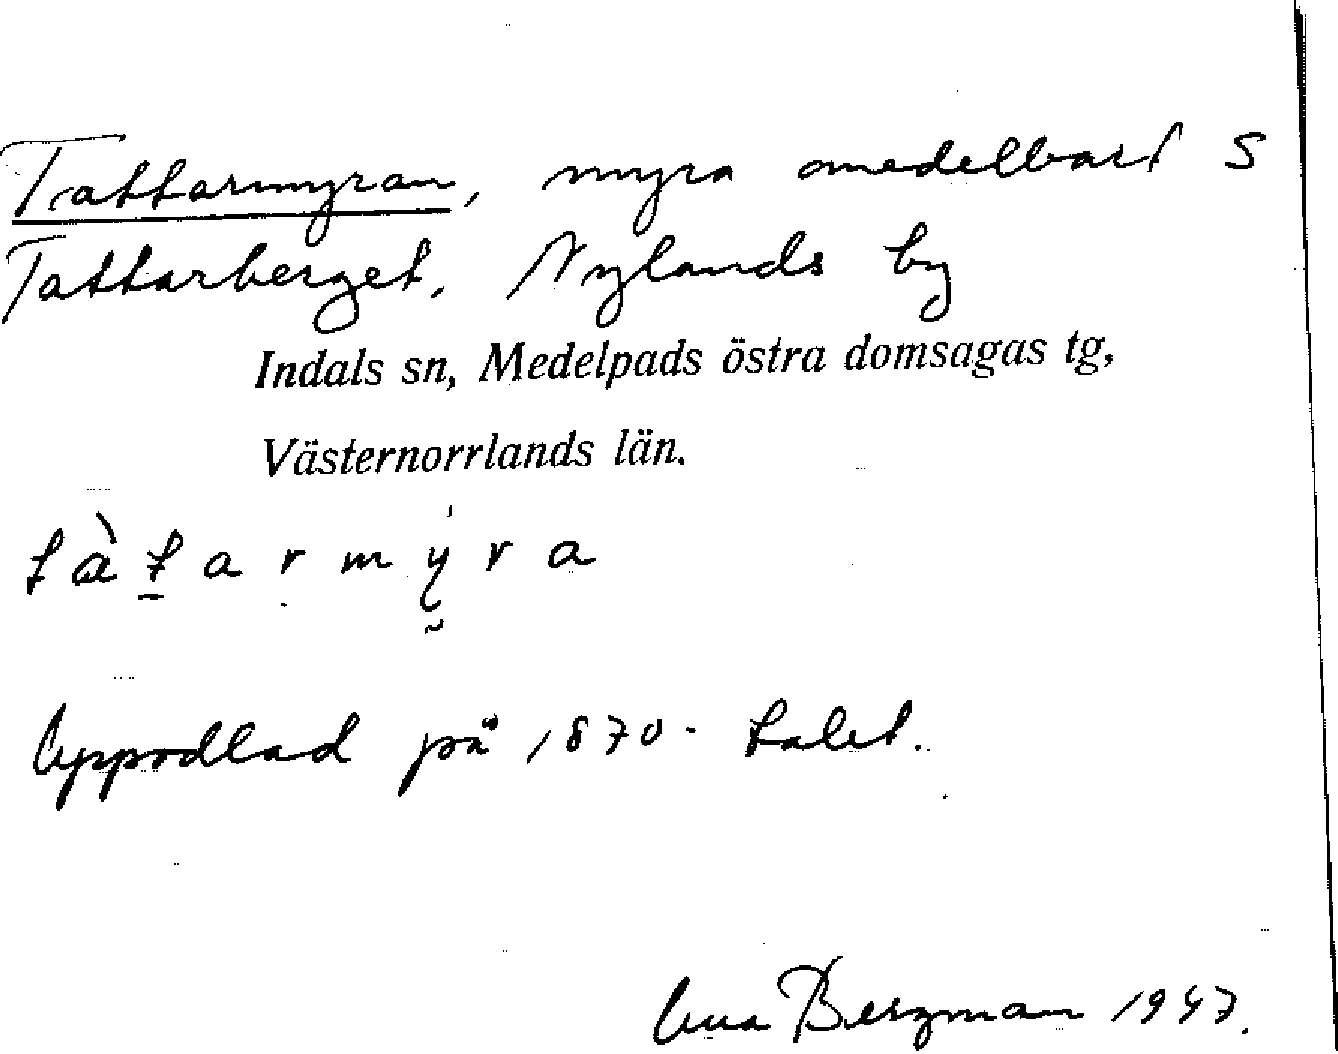 Tattarmyran, myra omedelbart S
Tattarberget, Nylands by
Indals sn, Medelpads östra domsagas tg,
Västernorrlands län.
tàt̠army̆ra
Uppodlad på 1870-talet.
Bergman 1947.